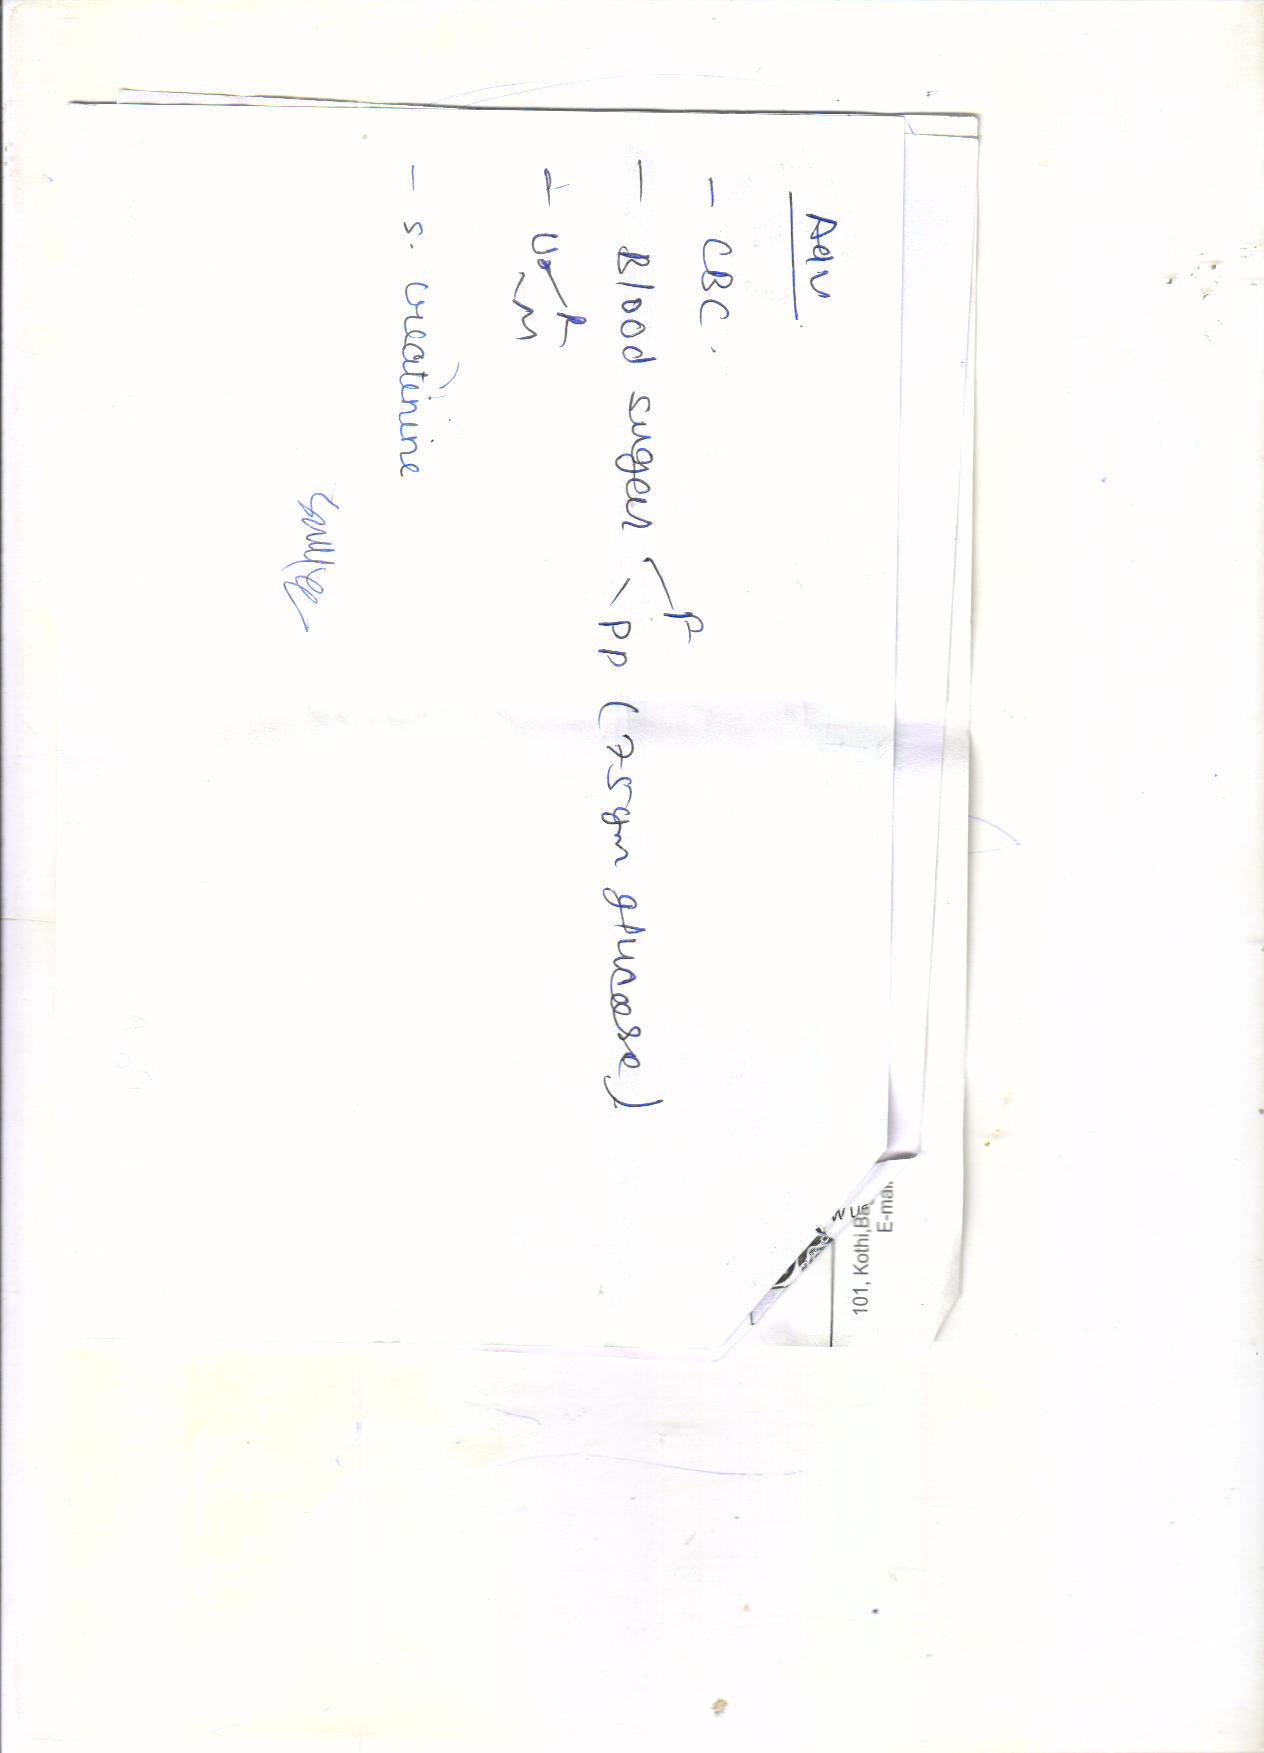 Adv
- CBC.
- Blood sugar < F
PP (75gm glucose)
- U < R
M
- S. creatinine
101, Kothi,Ba
E-mai